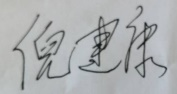 倪建康